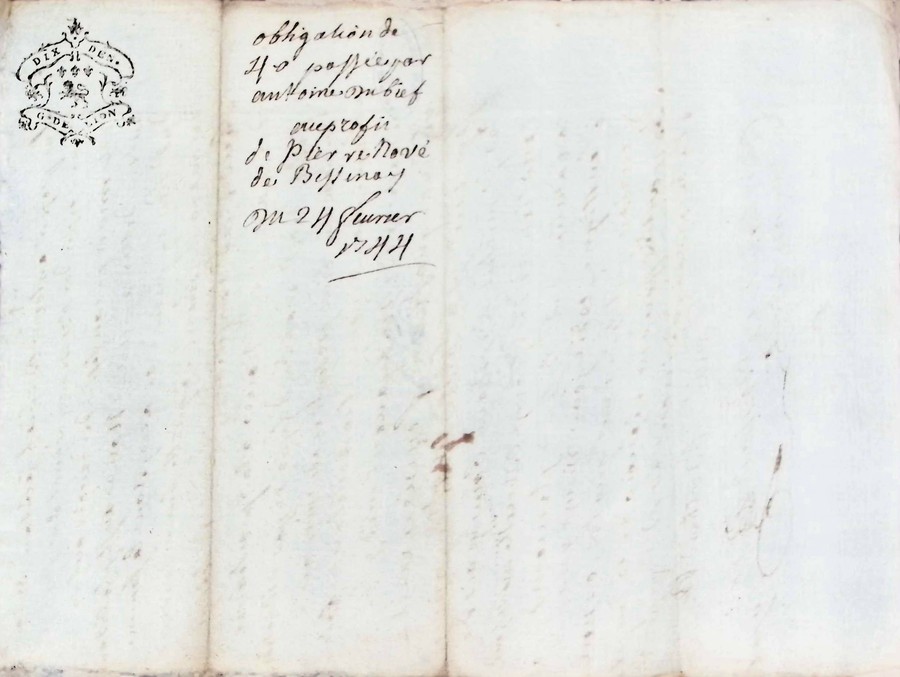 DIX DEN.
G. DE LYON
obligation de
40 passée par
antoine Dubief
au profit
de Pierre Nové
de Bessenay
Du 24 feuvrier
1744